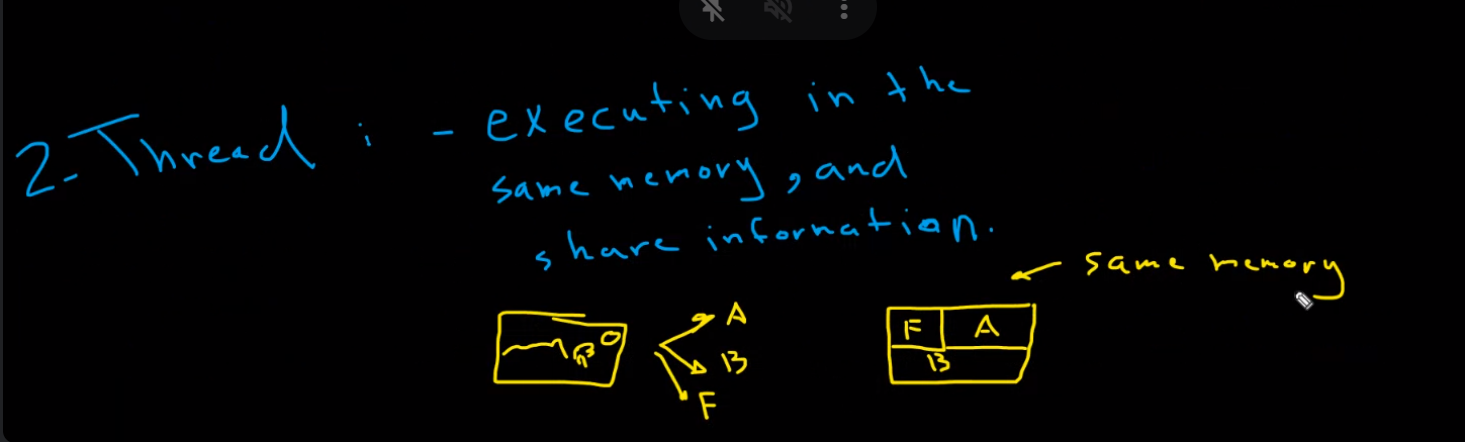 2-Thread : - executing in the
same memory, and
share information.
same memory
A
B
F
F A
B